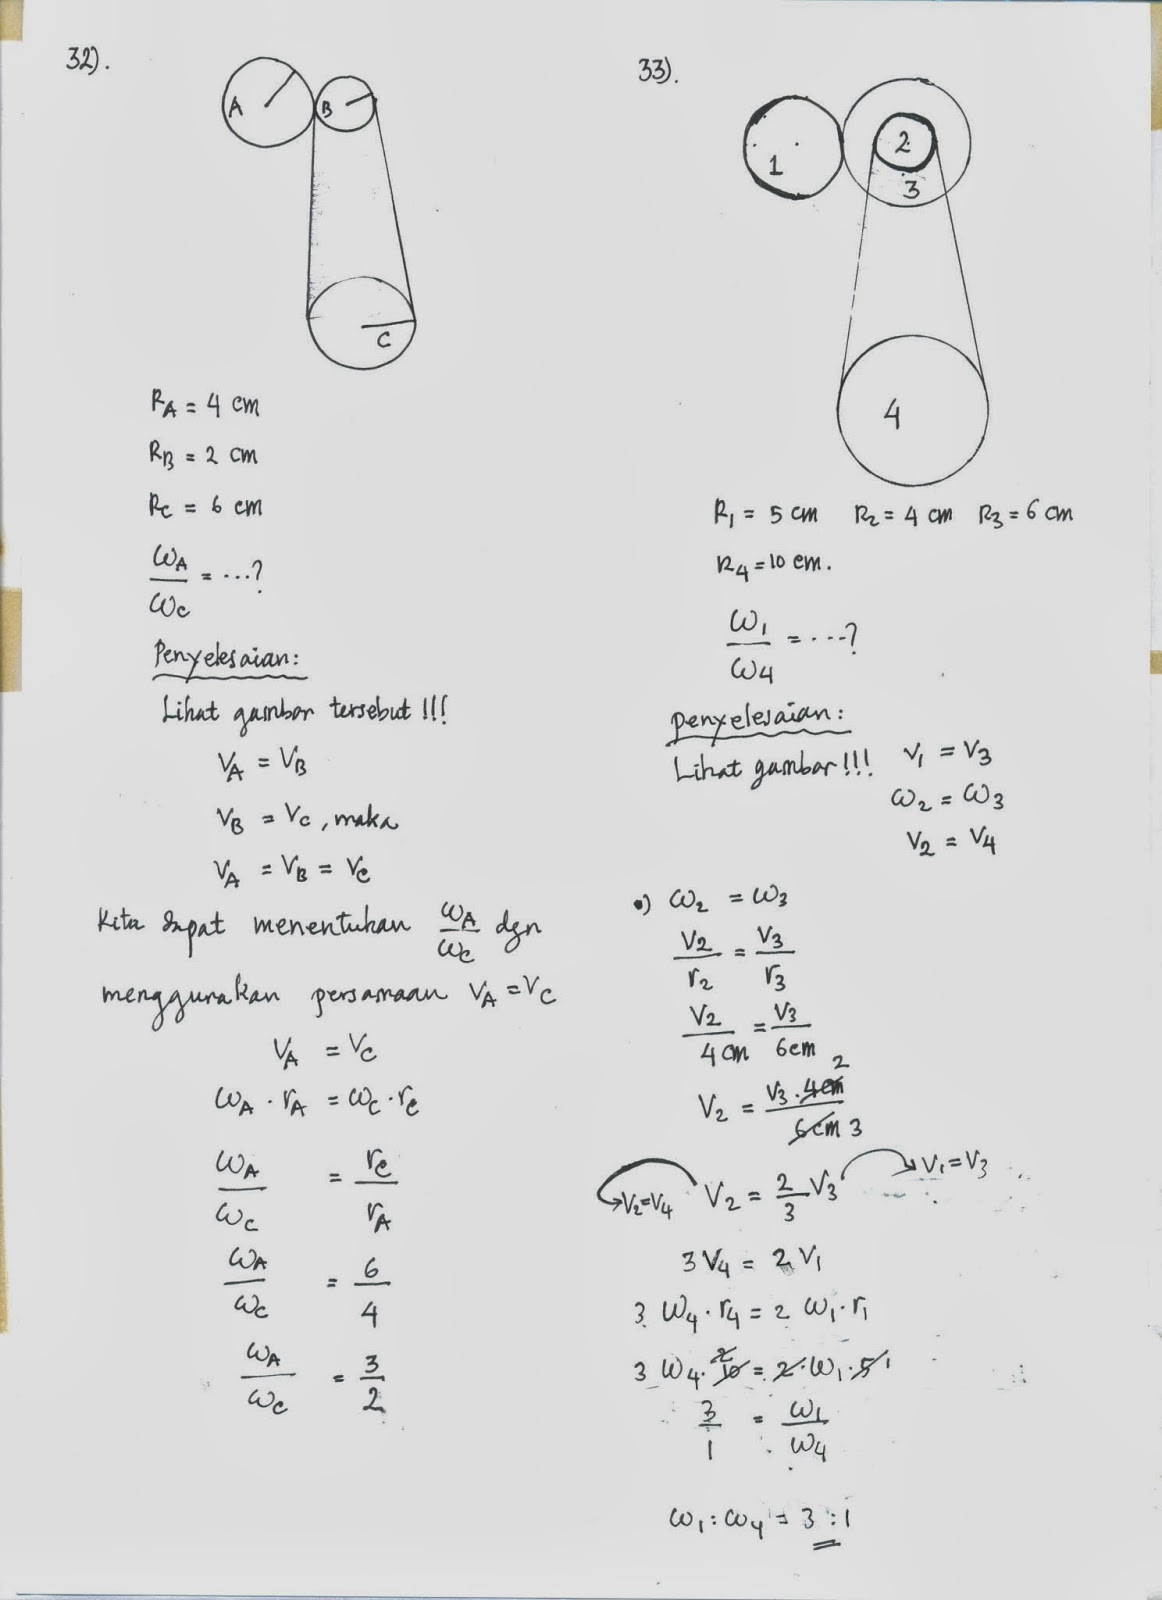 32).
A
B
C
R_A = 4 cm
R_B = 2 cm
R_C = 6 cm
ω_A/ω_C = ...?
Penyelesaian:
Lihat gambar tersebut !!!
V_A = V_B
V_B = V_C, maka
V_A = V_B = V_C
Kita dapat menentukan ω_A/ω_C dgn
menggunakan persamaan V_A = V_C
V_A = V_C
ω_A · r_A = ω_C · r_C
ω_A/ω_C = r_C/r_A
ω_A/ω_C = 6/4
ω_A/ω_C = 3/2
33).
1
2
3
4
R_1 = 5 cm R_2 = 4 cm R_3 = 6 cm
R_4 = 10 cm.
ω_1/ω_4 = ...?
penyelesaian:
Lihat gambar!!! V_1 = V_3
ω_2 = ω_3
V_2 = V_4
•) ω_2 = ω_3
V_2/r_2 = V_3/r_3
V_2/4 cm = V_3/6 cm
V_2 = V_3 . 4 cm 2/6 cm 3
V_2=V_4 V_2 = 2/3 V_3 V_1=V_3
3 V_4 = 2 V_1
3 ω_4 · r_4 = 2 ω_1 · r_1
3 ω_4 · 10 2 = 2 · ω_1 · 5 1
3/1 = ω_1/ω_4
ω_1 : ω_4 = 3 : 1